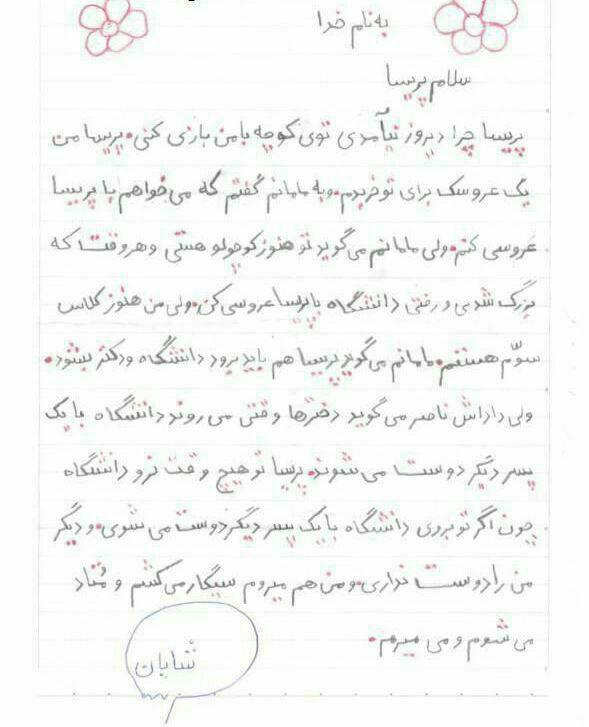 به نام خدا
سلام پریسا
پریسا چرا دیروز نیآمدی توی کوچه با من بازی کنی. پریسا من
یک عروسک برای تو خریدم. و به مامانم گفتم که می خواهم با پریسا
عروسی کنم. ولی مامانم می گوید تو هنوز کوچولو هستی و هروقت که
بزرگ شدی و رفتی دانشگاه با پریسا عروسی کن. ولی من هنوز کلاس
سوّم هستم. مامانم می گوید پریسا هم باید برود دانشگاه و دکتر بشود.
ولی داداش ناصر می گوید دخترها وقتی می روند دانشگاه با یک
پسر دیگر دوست می شوند. پریسا تو هیچ وقت نرو دانشگاه
چون اگر تو بروی دانشگاه با یک پسر دیگر دوست می شوی. و دیگر
من را دوست نداری. و من هم میروم سیگار می کشم و مُتاد
می شوم و می میرم.
شایان